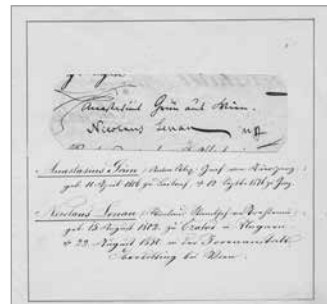 Anastasius Grün aus Wien.
Nicolaus Lenau
Anastasius Grün (Anton Alex. Graf von Auersperg)
geb. 11 April 1806 zu Laibach, + 12 Septb. 1876 zu Graz.
Nicolaus Lenau
geb. 13 August 1802. zu Csatad in Ungarn
+ 22. August 1850. in der Irrenanstalt
Oberdöbling bei Wien.